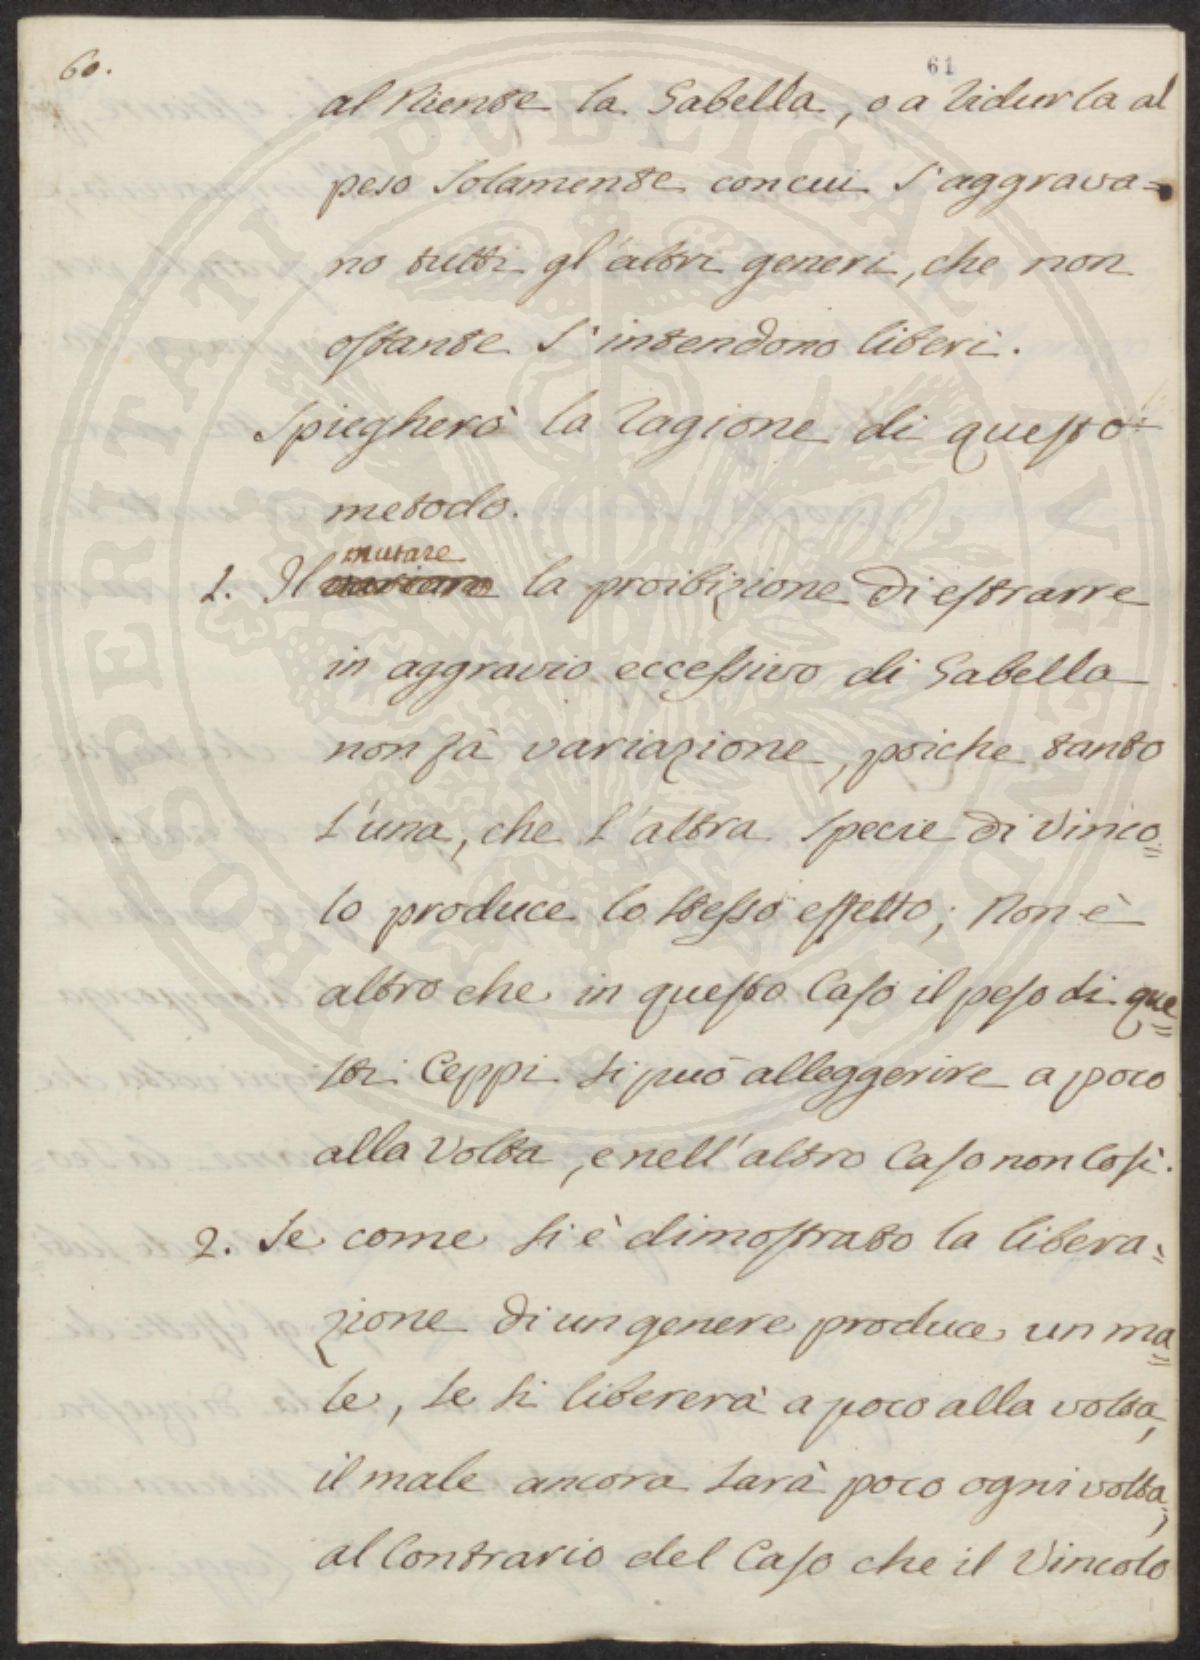 60.
61
al Niente la Gabella, o a ridurla al
peso solamente con cui s'aggrava=
no tutti gl'altri generi, che non
ostante s'intendono liberi.
Spiegherò la ragione di questo
metodo.
mutare
1. Il la proibizione di estrarre
in aggravio eccessivo di Gabella
non fà variazione, poiche tanto
l'una, che l'altra specie di Vinco=
lo produce lo stesso effetto; Non è
altro che in questo Caso il peso di que=
sti Ceppi si può alleggerire a poco
alla Volta, e nell'altro Caso non Così.
2. Se come si è dimostrato la libera=
zione di un genere produce un ma=
le, se si libererà a poco alla volta,
il male ancora sarà poco ogni volta;
al Contrario del Caso che il Vincolo
PROSPERITATI PUBLICAE AVGENDAE